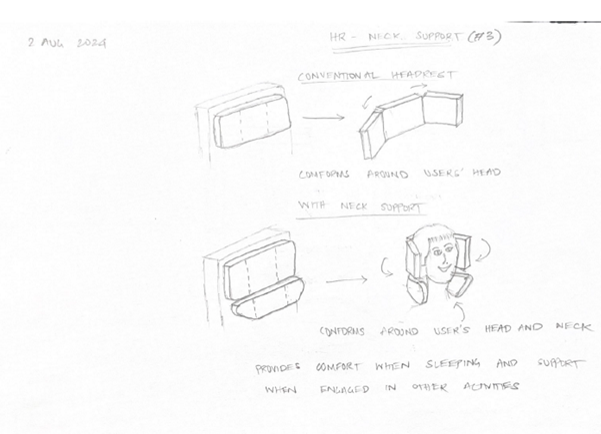 2 AUG 2024
HR - NECK SUPPORT (#3)
CONVENTIONAL HEADREST
CONFORMS AROUND USERS' HEAD
WITH NECK SUPPORT
CONFORMS AROUND USER'S HEAD AND NECK
PROVIDES COMFORT WHEN SLEEPING AND SUPPORT
WHEN ENGAGED IN OTHER ACTIVITIES